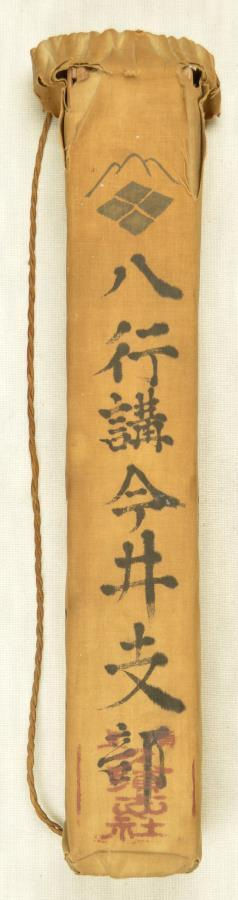 八行講今井支部